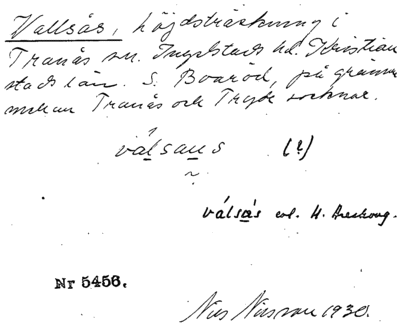 Vallsås, höjdsträckning i
Tranås sn. Ingelstads hd. Kristian
stads län. S. Boaröd, på gränsen
mellan Tranås och Tryde socknar.
válsans (?)
válsås enl. H. Areskoug.
Nr 5456.
Nils Nilsson 1930.